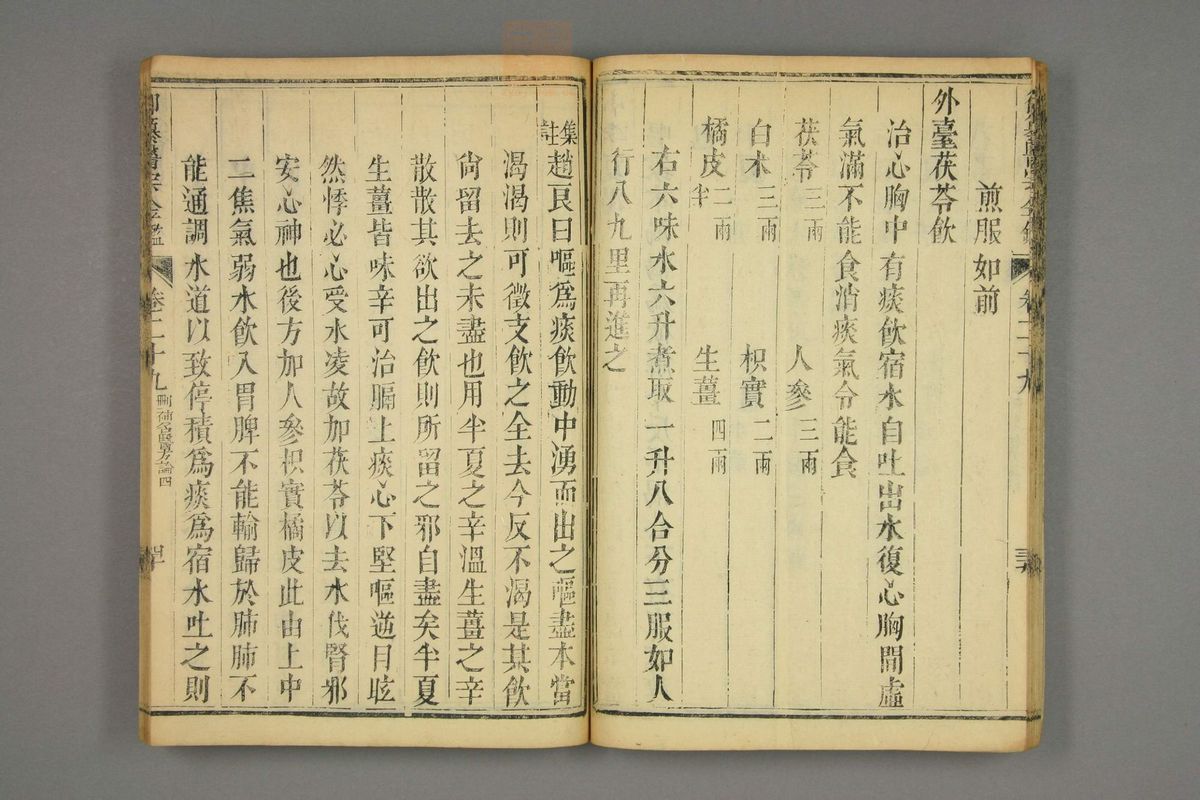 煎服如前
外臺茯苓飲
治心胸中有痰飲宿水自吐出水復心胸間虛
氣滿不能食消痰氣令能食
茯苓三兩　人參三兩
白术三兩　枳實二兩
橘皮二兩半　生薑四兩
右六味水六升煮取一升八合分三服如人
行八九里再進之
集註趙良曰嘔爲痰飲動中湧而出之嘔盡本當
渴渴則可徵支飲之全去今反不渴是其飲
尚留去之未盡也用半夏之辛溫生薑之辛
散散其欲出之飲則所留之邪自盡矣半夏
生薑皆味辛可治膈上痰心下堅嘔逆目眩
然悸必心受水凌故加茯苓以去水伐腎邪
安心神也後方加人參枳實橘皮此由上中
二焦氣弱水飲入胃脾不能輸歸於肺肺不
能通調水道以致停積爲痰爲宿水吐之則
御纂醫宗金鑑　卷二十九　刪補名醫方論四